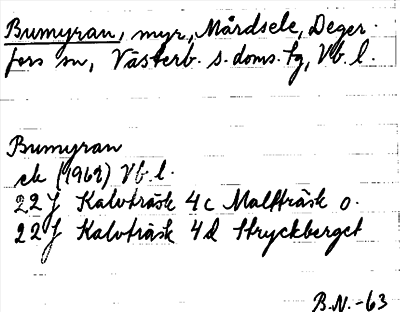 Bumyran, myr, Mårdsele, Deger-
fors sn, Västerb. s. doms. tg, Vb. l.
Bumyran
ek (1969) Vb. l.
22J Kalvträsk 4c Malträsk o.
22J Kalvträsk 4d Stryckberget
B.N.-63